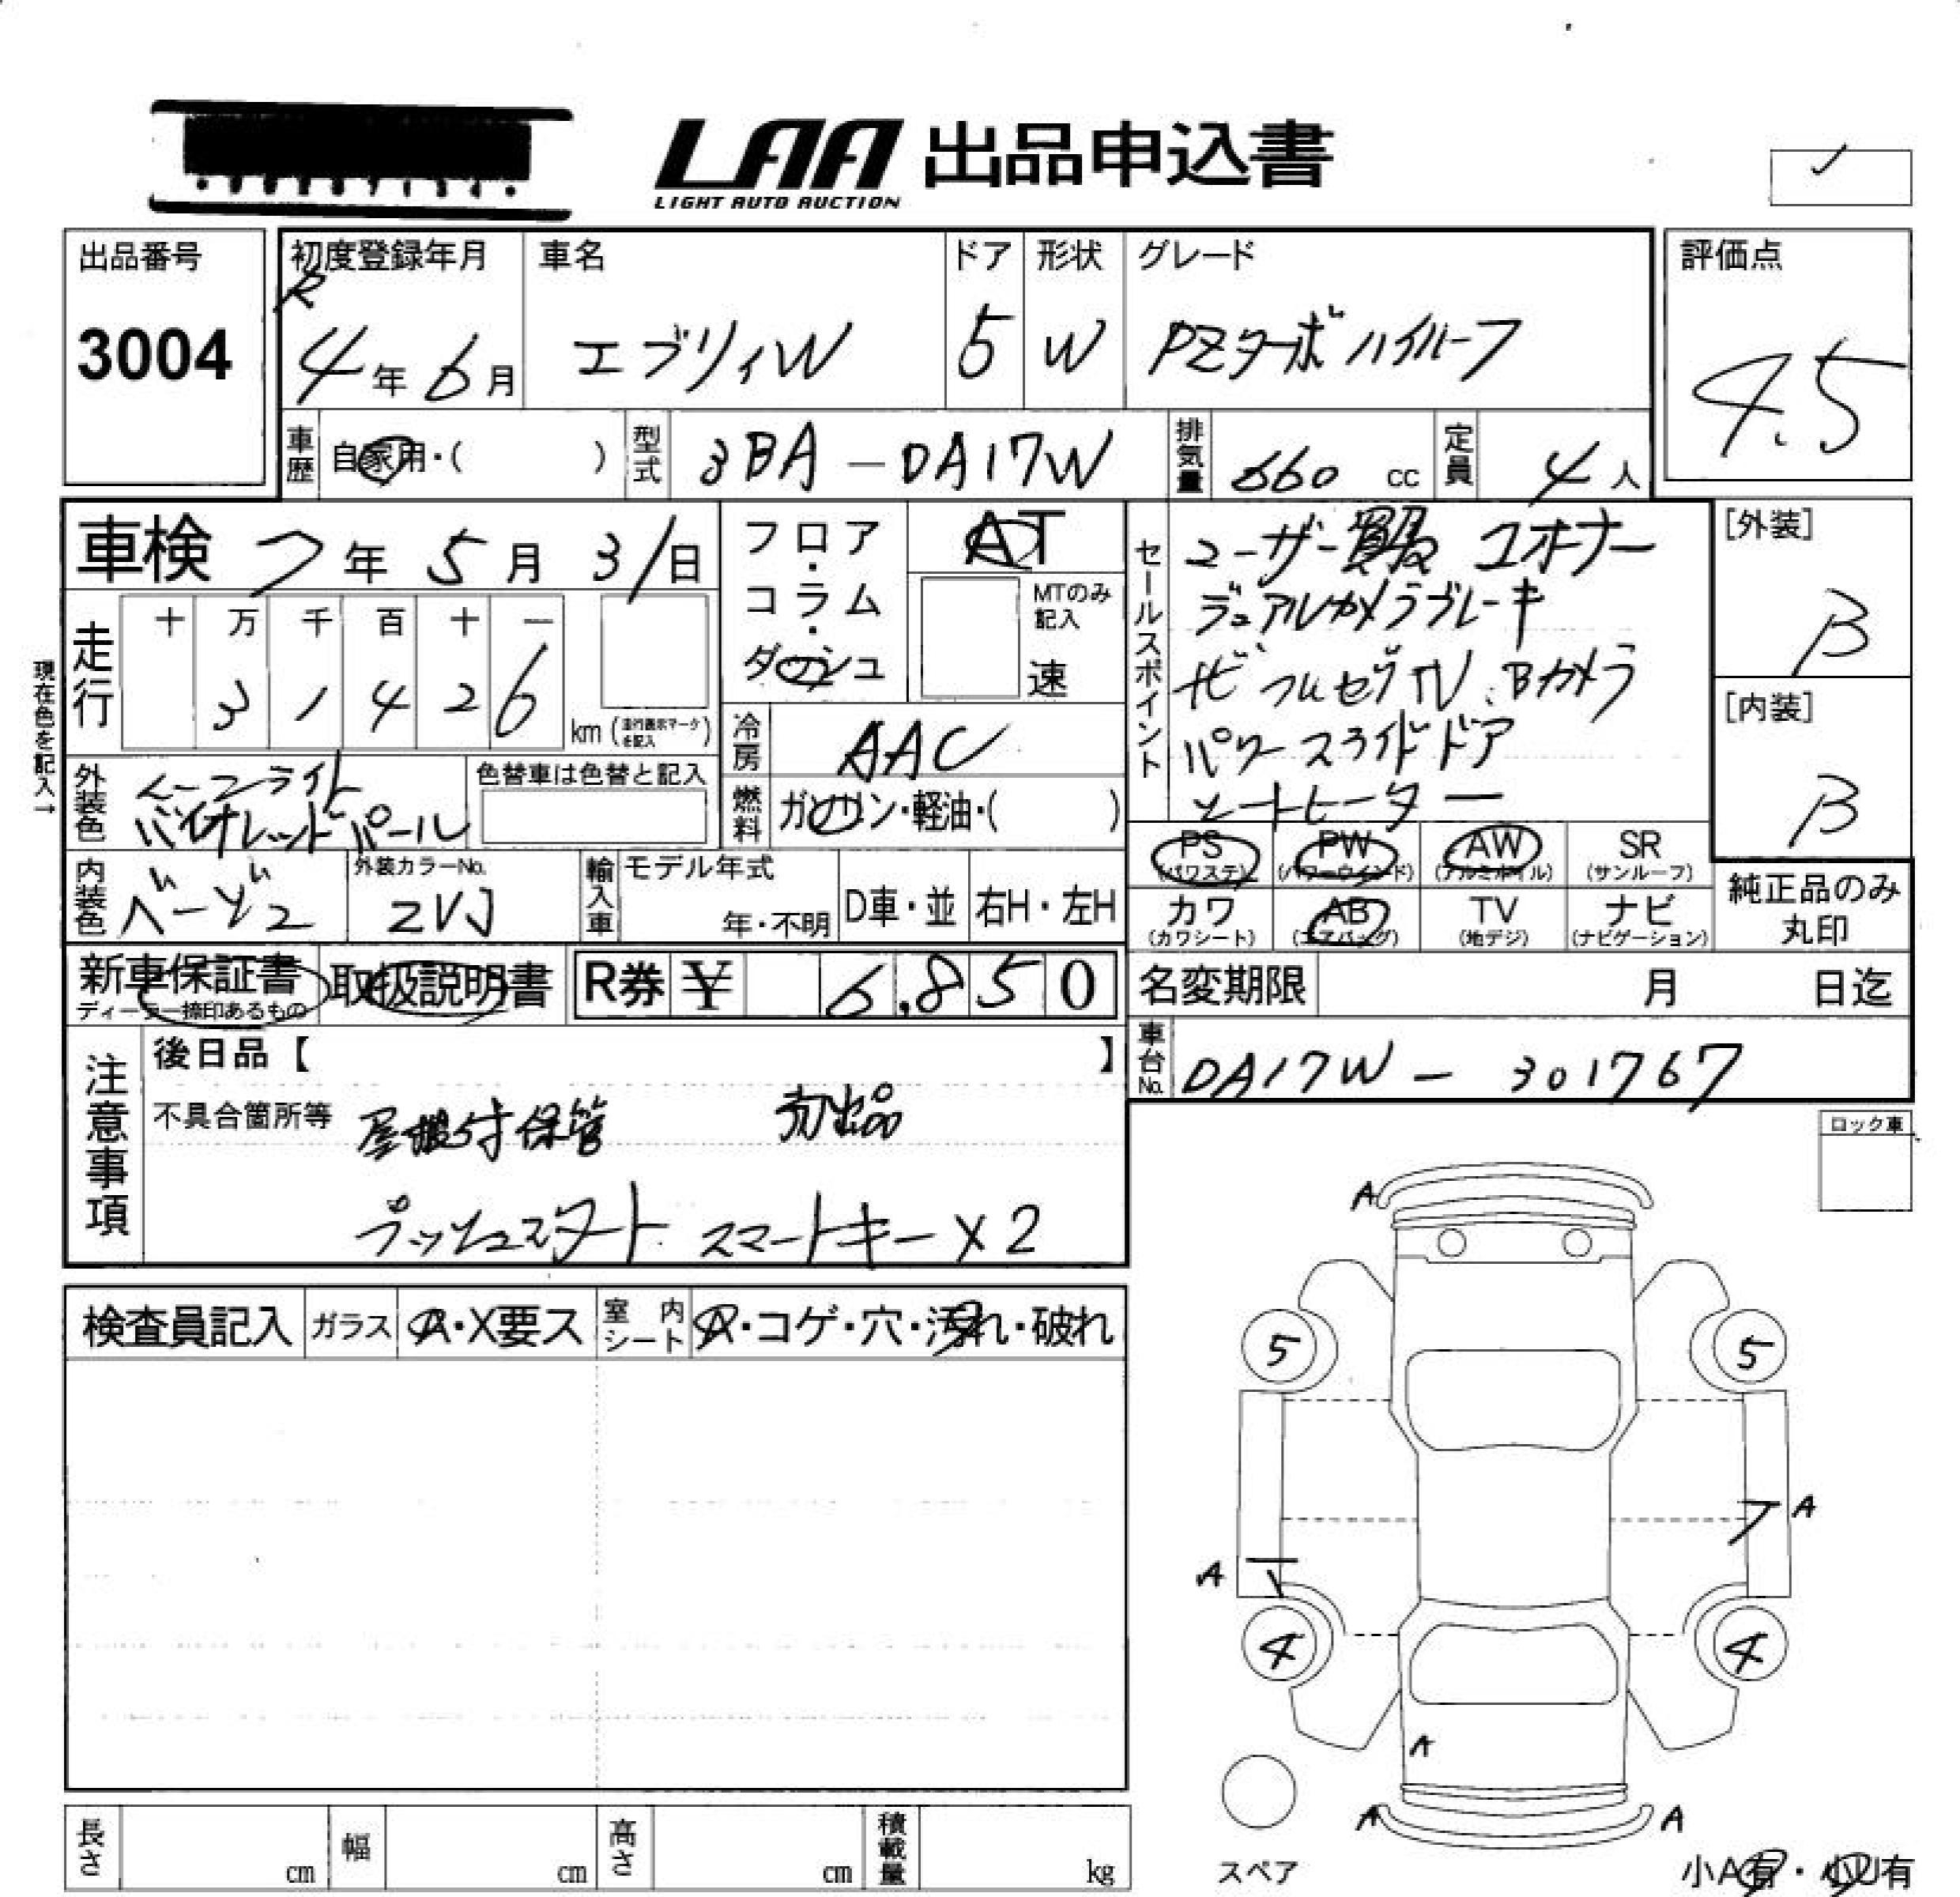 LAA 出品申込書
LIGHT AUTO AUCTION
出品番号
3004
初度登録年月
R
4年 6月
車名
エブリィW
ドア
5
形状
W
グレード
PZターボ ハイルーフ
評価点
4.5
車歴
自家用・( )
型式
3BA-DA17W
排気量
660 cc
定員
4人
車検 7年 5月 31日
フロア・コラム・ダッシュ
AT
MTのみ記入
速
セールスポイント
ユーザー買取 1オーナー
デュアルカメラブレーキ
ナビ フルセグTV、Bカメラ
パワースライドドア
シートヒーター
[外装]
B
[内装]
B
現在色を記入→
走行
十 万 千 百 十 一
3 1 4 2 6
km (走行表示マークを記入)
冷房
AAC
燃料
ガソリン・軽油・( )
外装色
ムーンライト
バイオレットパール
色替車は色替と記入
内装色
ベージュ
外装カラーNo.
ZVJ
輸入車
モデル年式
年・不明
D車・並
右H・左H
PS
(パワステ)
PW
(パワーウインド)
AW
(アルミホイル)
SR
(サンルーフ)
カワ
(カワシート)
AB
(エアバッグ)
TV
(地デジ)
ナビ
(ナビゲーション)
純正品のみ
丸印
新車保証書
ディーラー捺印あるもの
取扱説明書
R券 ¥ 6,850
名変期限 月 日迄
車台No.
DA17W-301767
注意事項
後日品【 】
不具合箇所等
屋根付保管 初出品
プッシュスタート スマートキー×2
ロック車
検査員記入
ガラス
A・X要ス
室内シート
A・コゲ・穴・汚れ・破れ
A
5 5
A
A
4 4
A
A A
スペア
小A有・小U有
長さ cm
幅 cm
高さ cm
積載量 kg